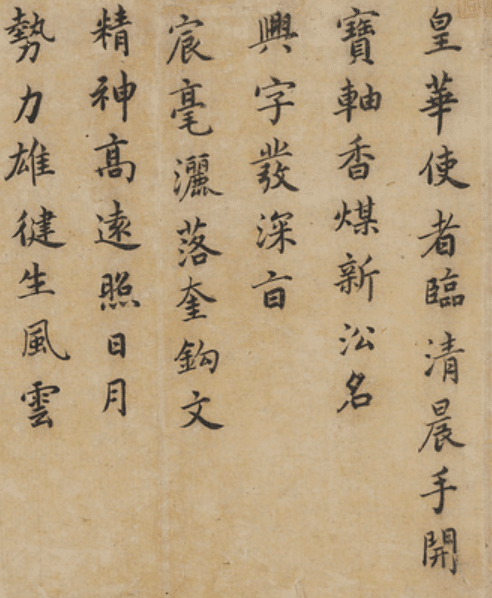 皇華使者臨清晨手開
寶軸香煤新㳂名
興字發深㫖
宸毫灑落奎鈎文
精神髙遠照日月
勢力雄徤生風雲